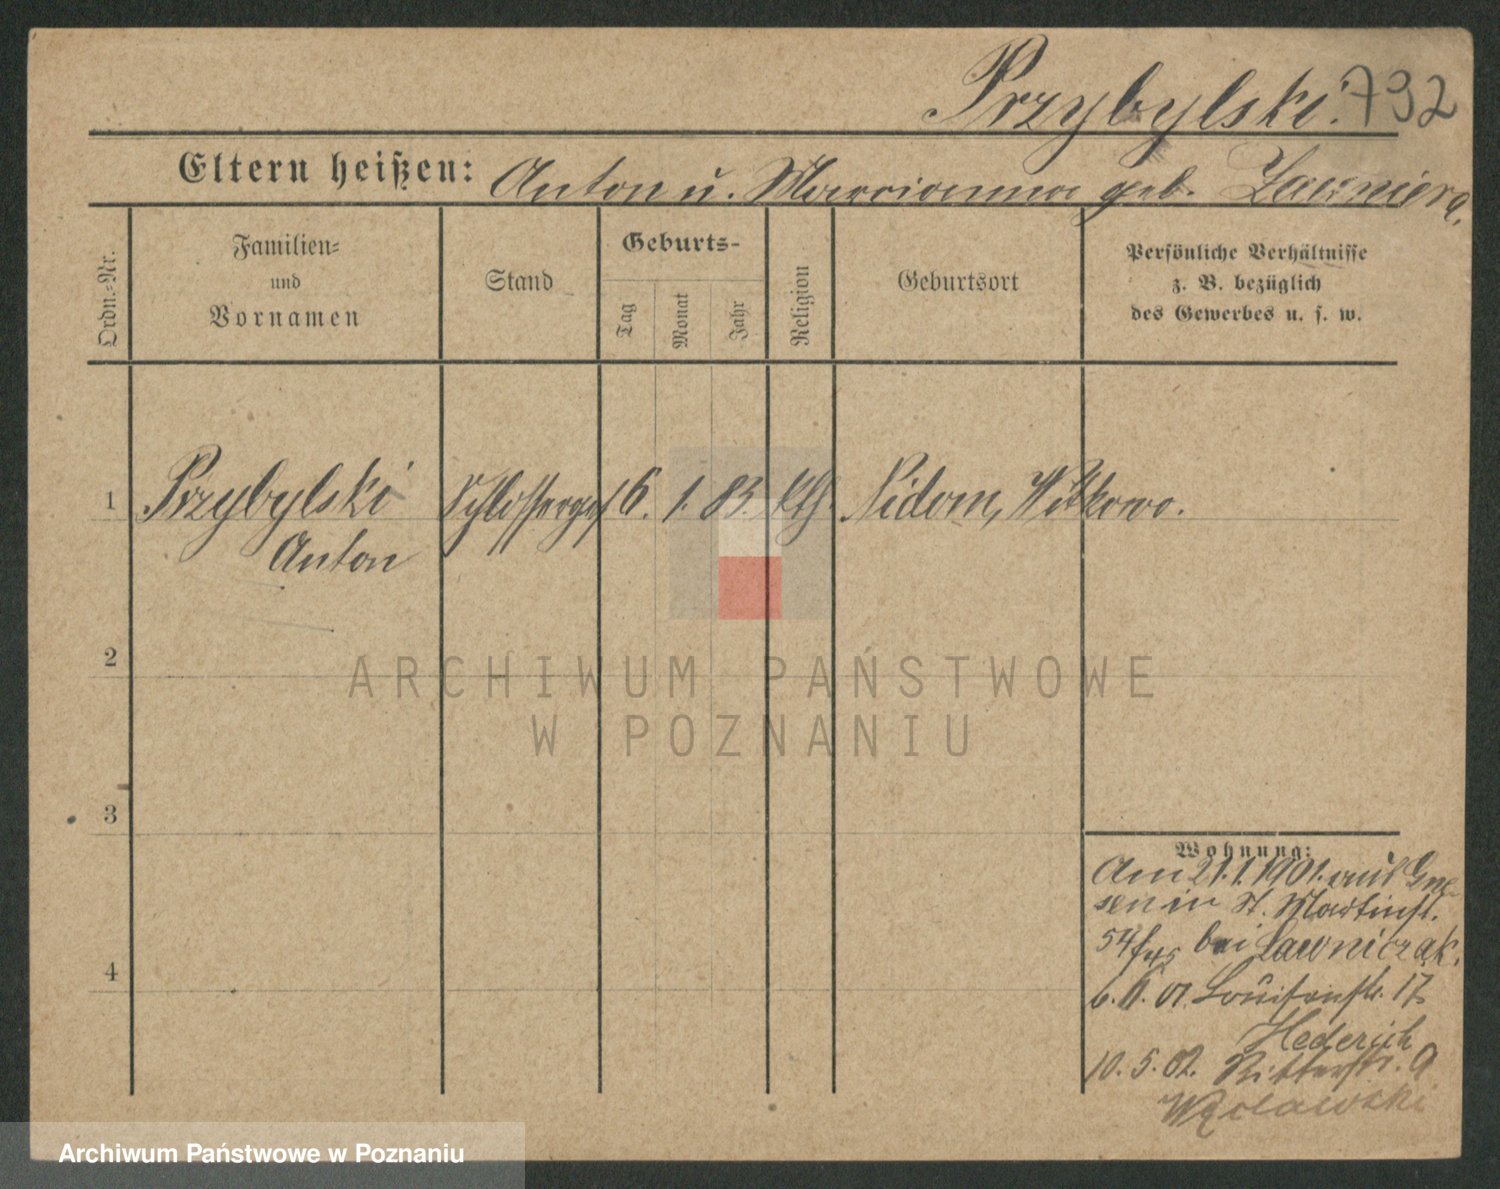 Przybylski. 792
Eltern heißen: Anton u. Marrianna geb. Lawniera.
Ordn.-Nr.
Familien-
und
Vornamen
Stand
Geburts-
Tag
Monat
Jahr
Religion
Geburtsort
Persönliche Verhältnisse
z. B. bezüglich
des Gewerbes u. s. w.
1 Przybylski Schlosserges 6. 1. 83. kth. Nidom, Witkowo.
Anton
2
ARCHIWUM PAŃSTWOWE
W POZNANIU
3
4
Wohnung:
Am 21.1.1901. aus Gne-
sen in St. Martinst.
54 bei Lawniczak.
6. 6. 01. Louisenstr. 17
Hederich
10. 5. 02. Ritterstr. 9
Węclawski
Archiwum Państwowe w Poznaniu